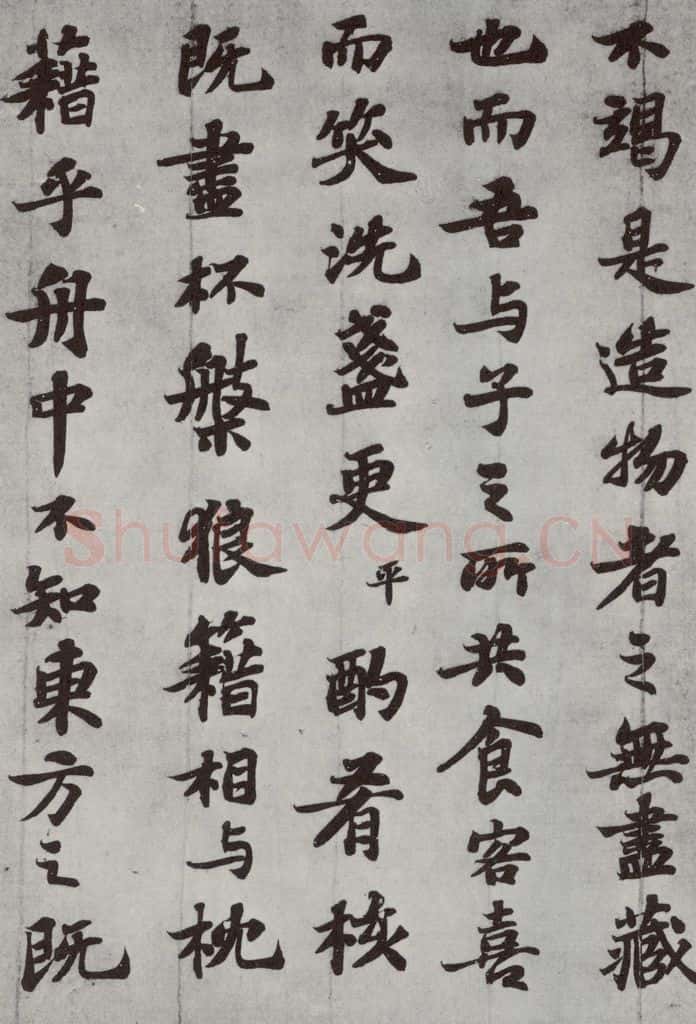 不竭是造物者之無盡藏
也而吾与子之所共食客喜
而笑洗盞更平酌肴核
既盡杯槃狼籍相与枕
藉乎舟中不知東方之既
Shufawang.CN